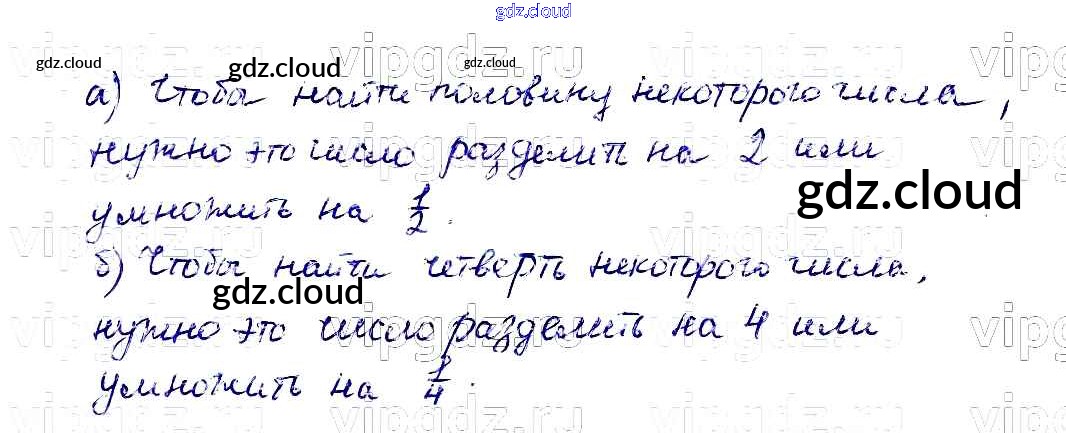 gdz.cloud
vipgdz.ru
gdz.cloud gdz.cloud gdz.cloud
а) Чтобы найти половину некоторого числа,
нужно это число разделить на 2 или
gdz.cloud
умножить на 1/2.
vipgdz.ru
б) Чтобы найти четверть некоторого числа,
gdz.cloud
нужно это число разделить на 4 или
умножить на 1/4.
vipgdz.ru